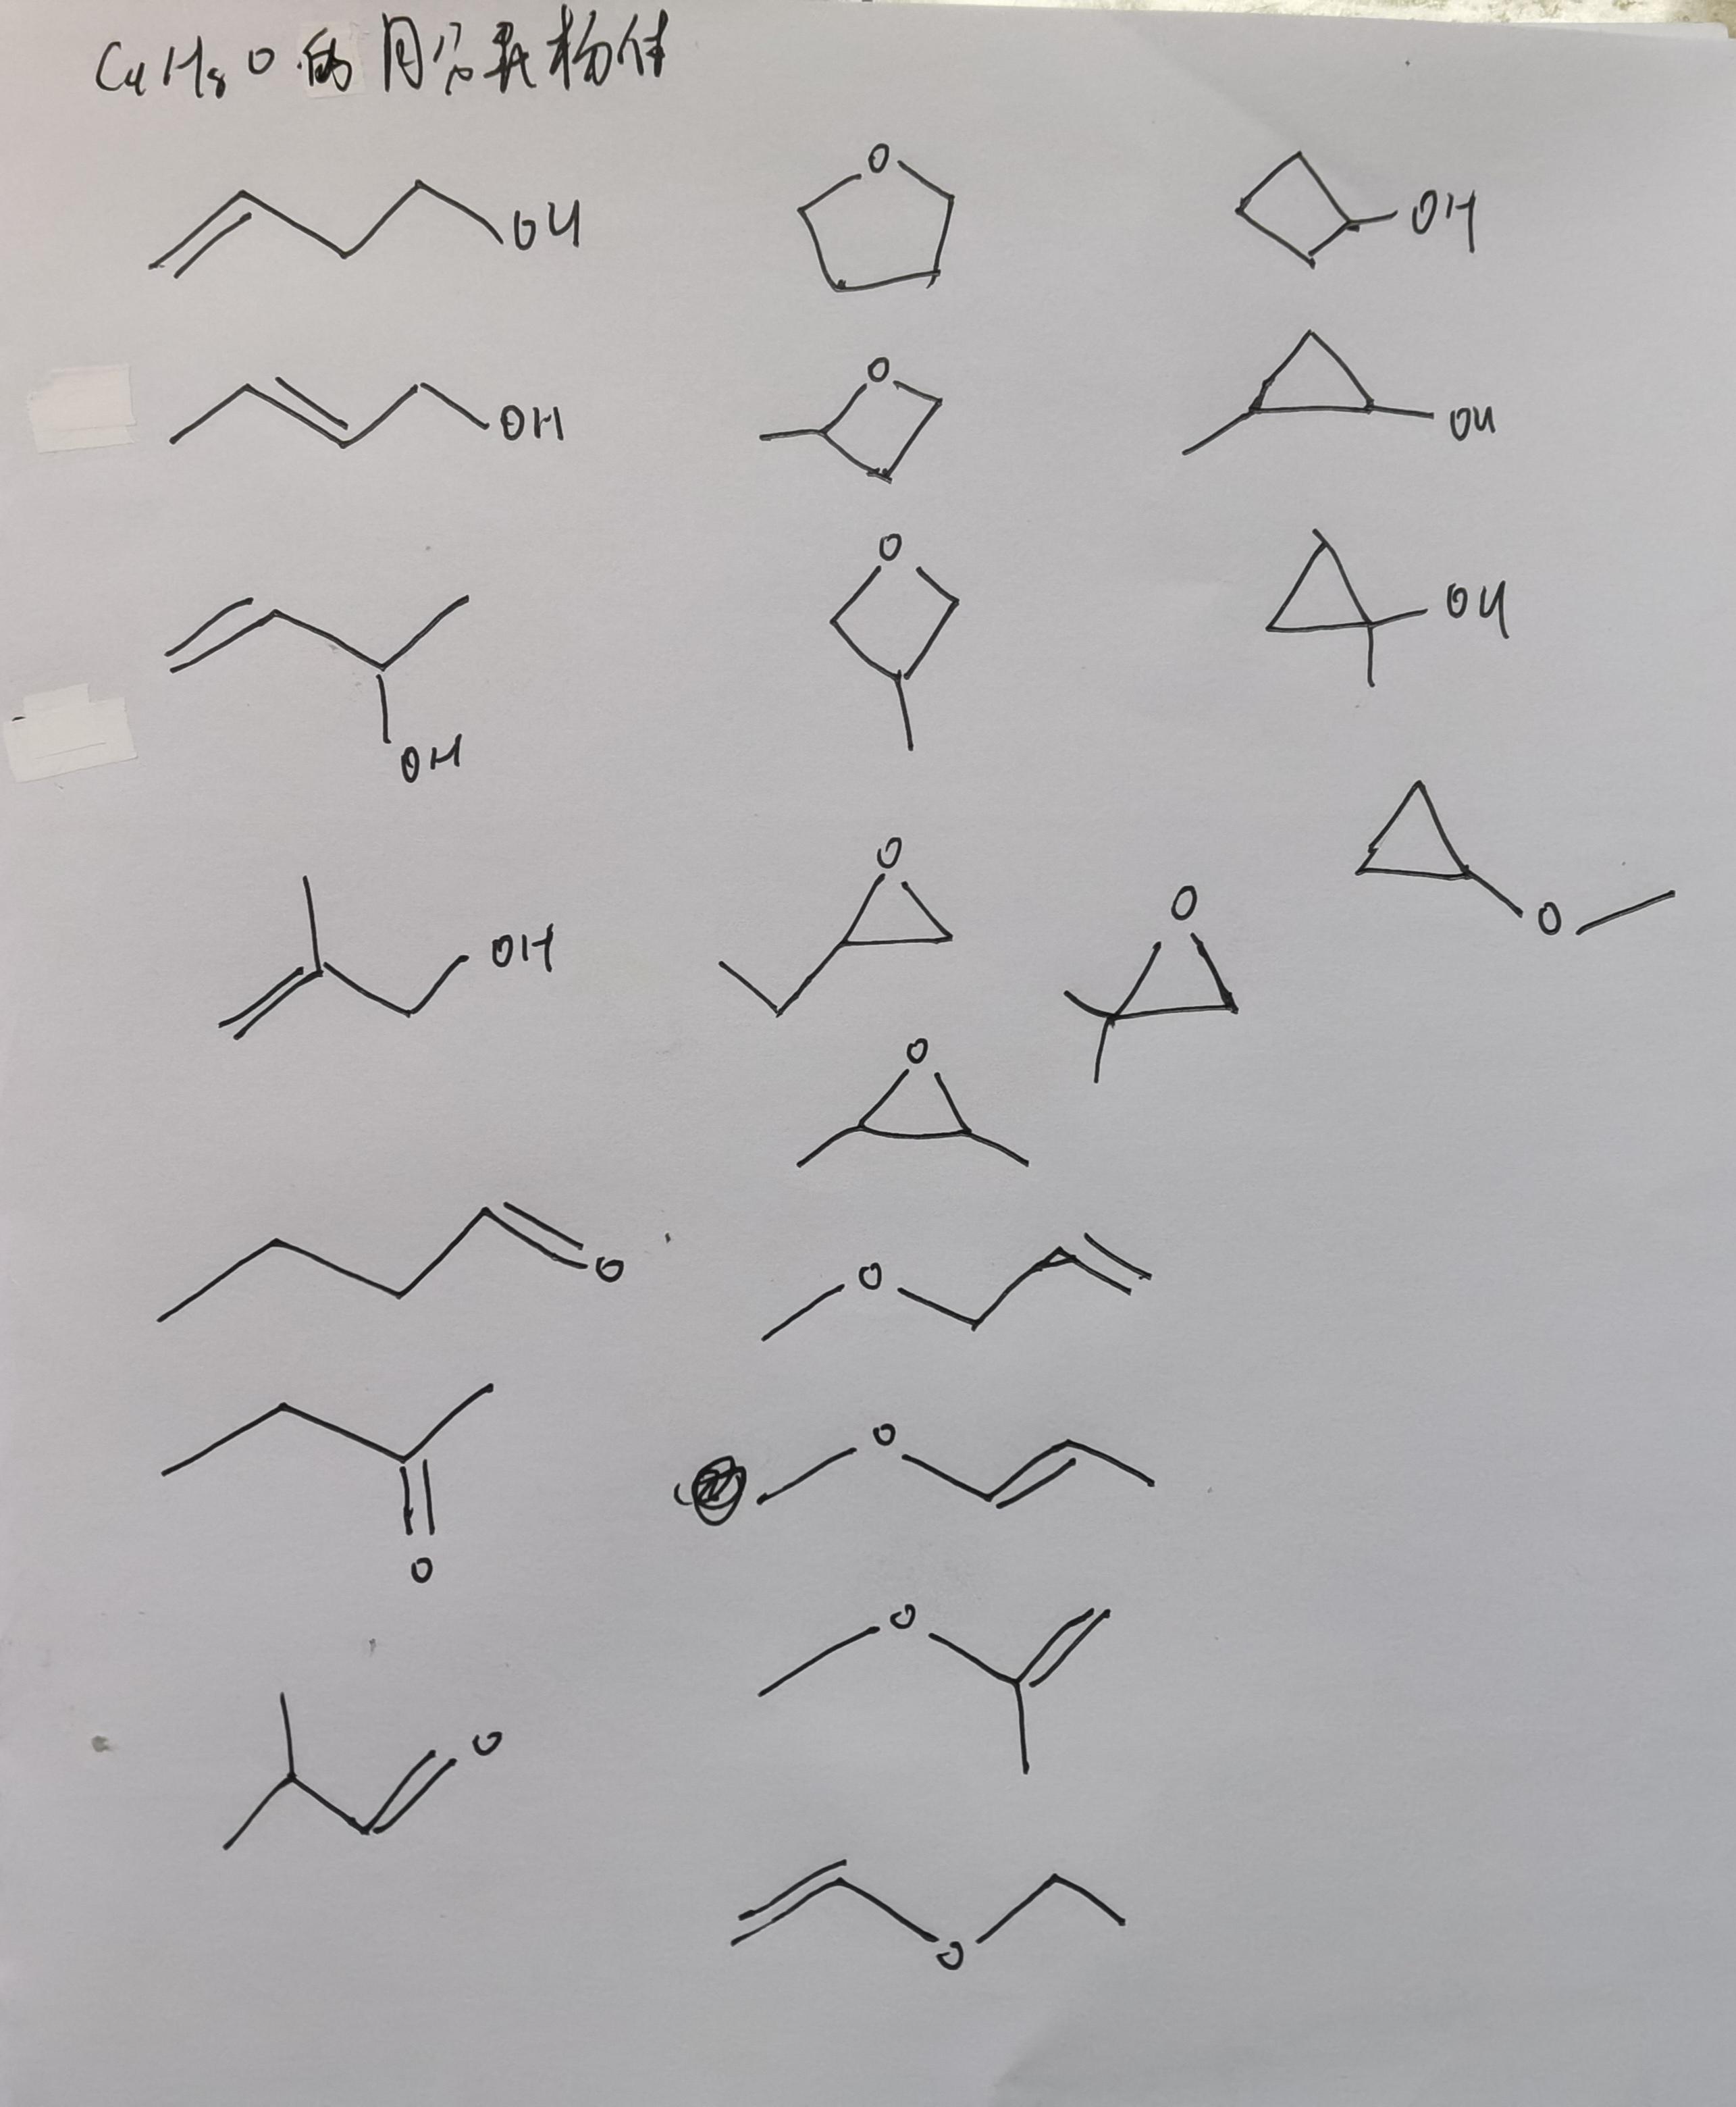 C4H8O的同分异构体
OH
O
OH
OH
O
OH
OH
O
OH
O
OH
O
O
O
O
O
O
O
O
O
O
O